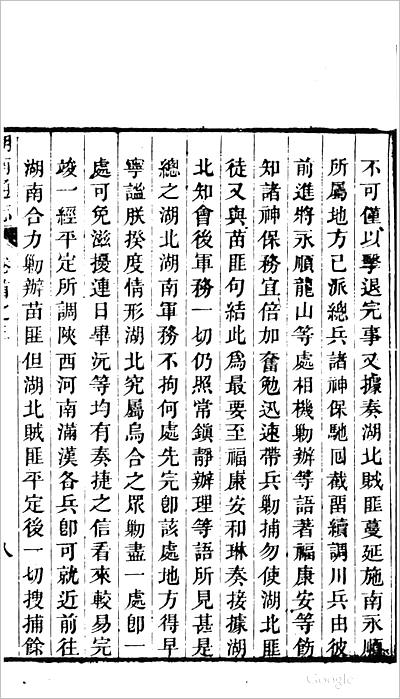 不可僅以擊退完事又據奏湖北賊匪蔓延施南永順
所屬地方已派總兵諸神保馳回截畱續調川兵由彼
前進將永順龍山等處相機勦辦等語著福康安等飭
知諸神保務宜倍加奮勉迅速帶兵勦捕勿使湖北匪
徒又與苗匪句結此爲最要至福康安和琳奏接據湖
北知會後軍務一切仍照常鎭靜辦理等語所見甚是
總之湖北湖南軍務不拘何處先完卽該處地方得早
寧謐朕揆度情形湖北究屬烏合之眾勦盡一處卽一
處可免滋擾連日畢沅等均有奏捷之信看來較易完
竣一經平定所調陝西河南滿漢各兵卽可就近前往
湖南合力勦辦苗匪但湖北賊匪平定後一切搜捕餘
卷首之三
八
Google